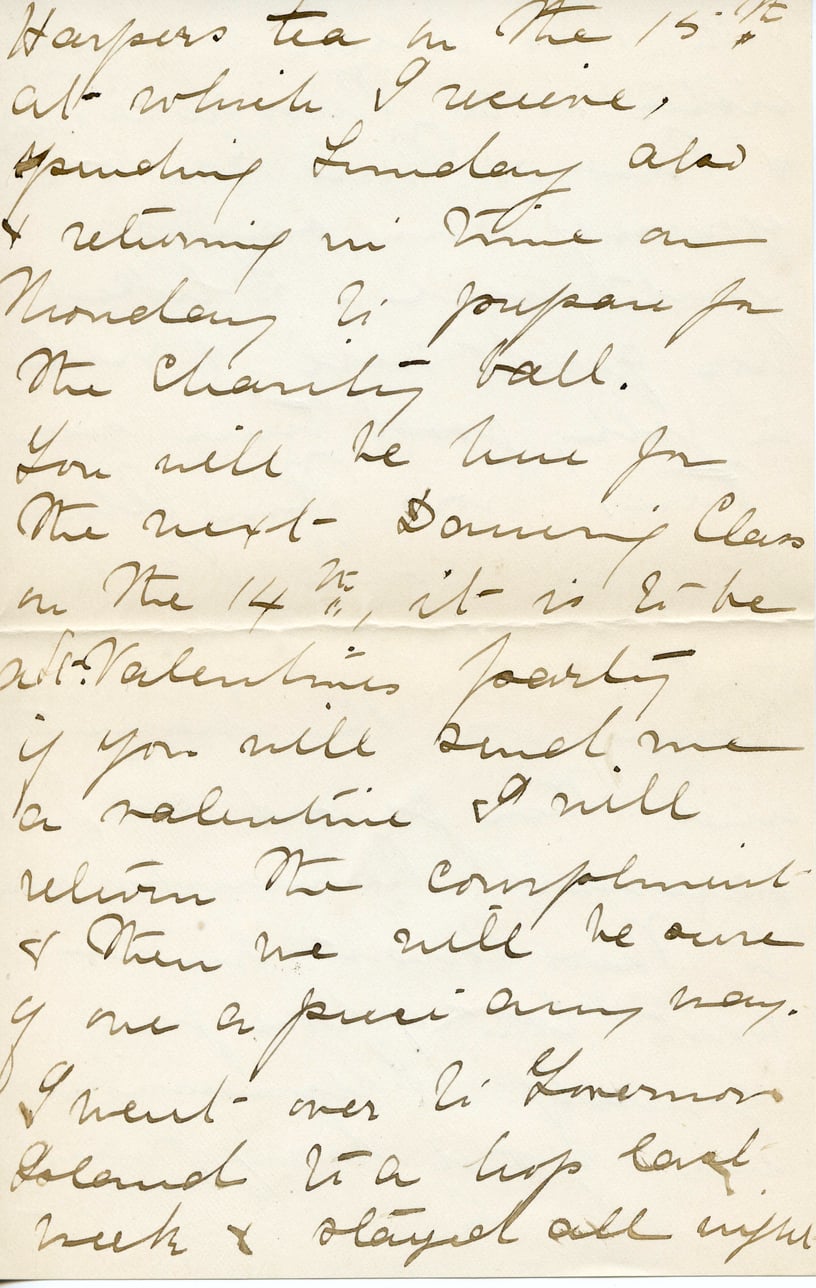 Harpers tea on the 15th
at which I receive,
spending Sunday also
& returning in time on
Monday to prepare for
the Charity ball.
You will be here for
the next Dancing Class
on the 14th, it is to be
a St. Valentines party
if you will send me
a valentine & I will
return the compliment
& then we will be sure
of one a piece any way.
I went over to Governors
Island to a hop last
week & stayed all night